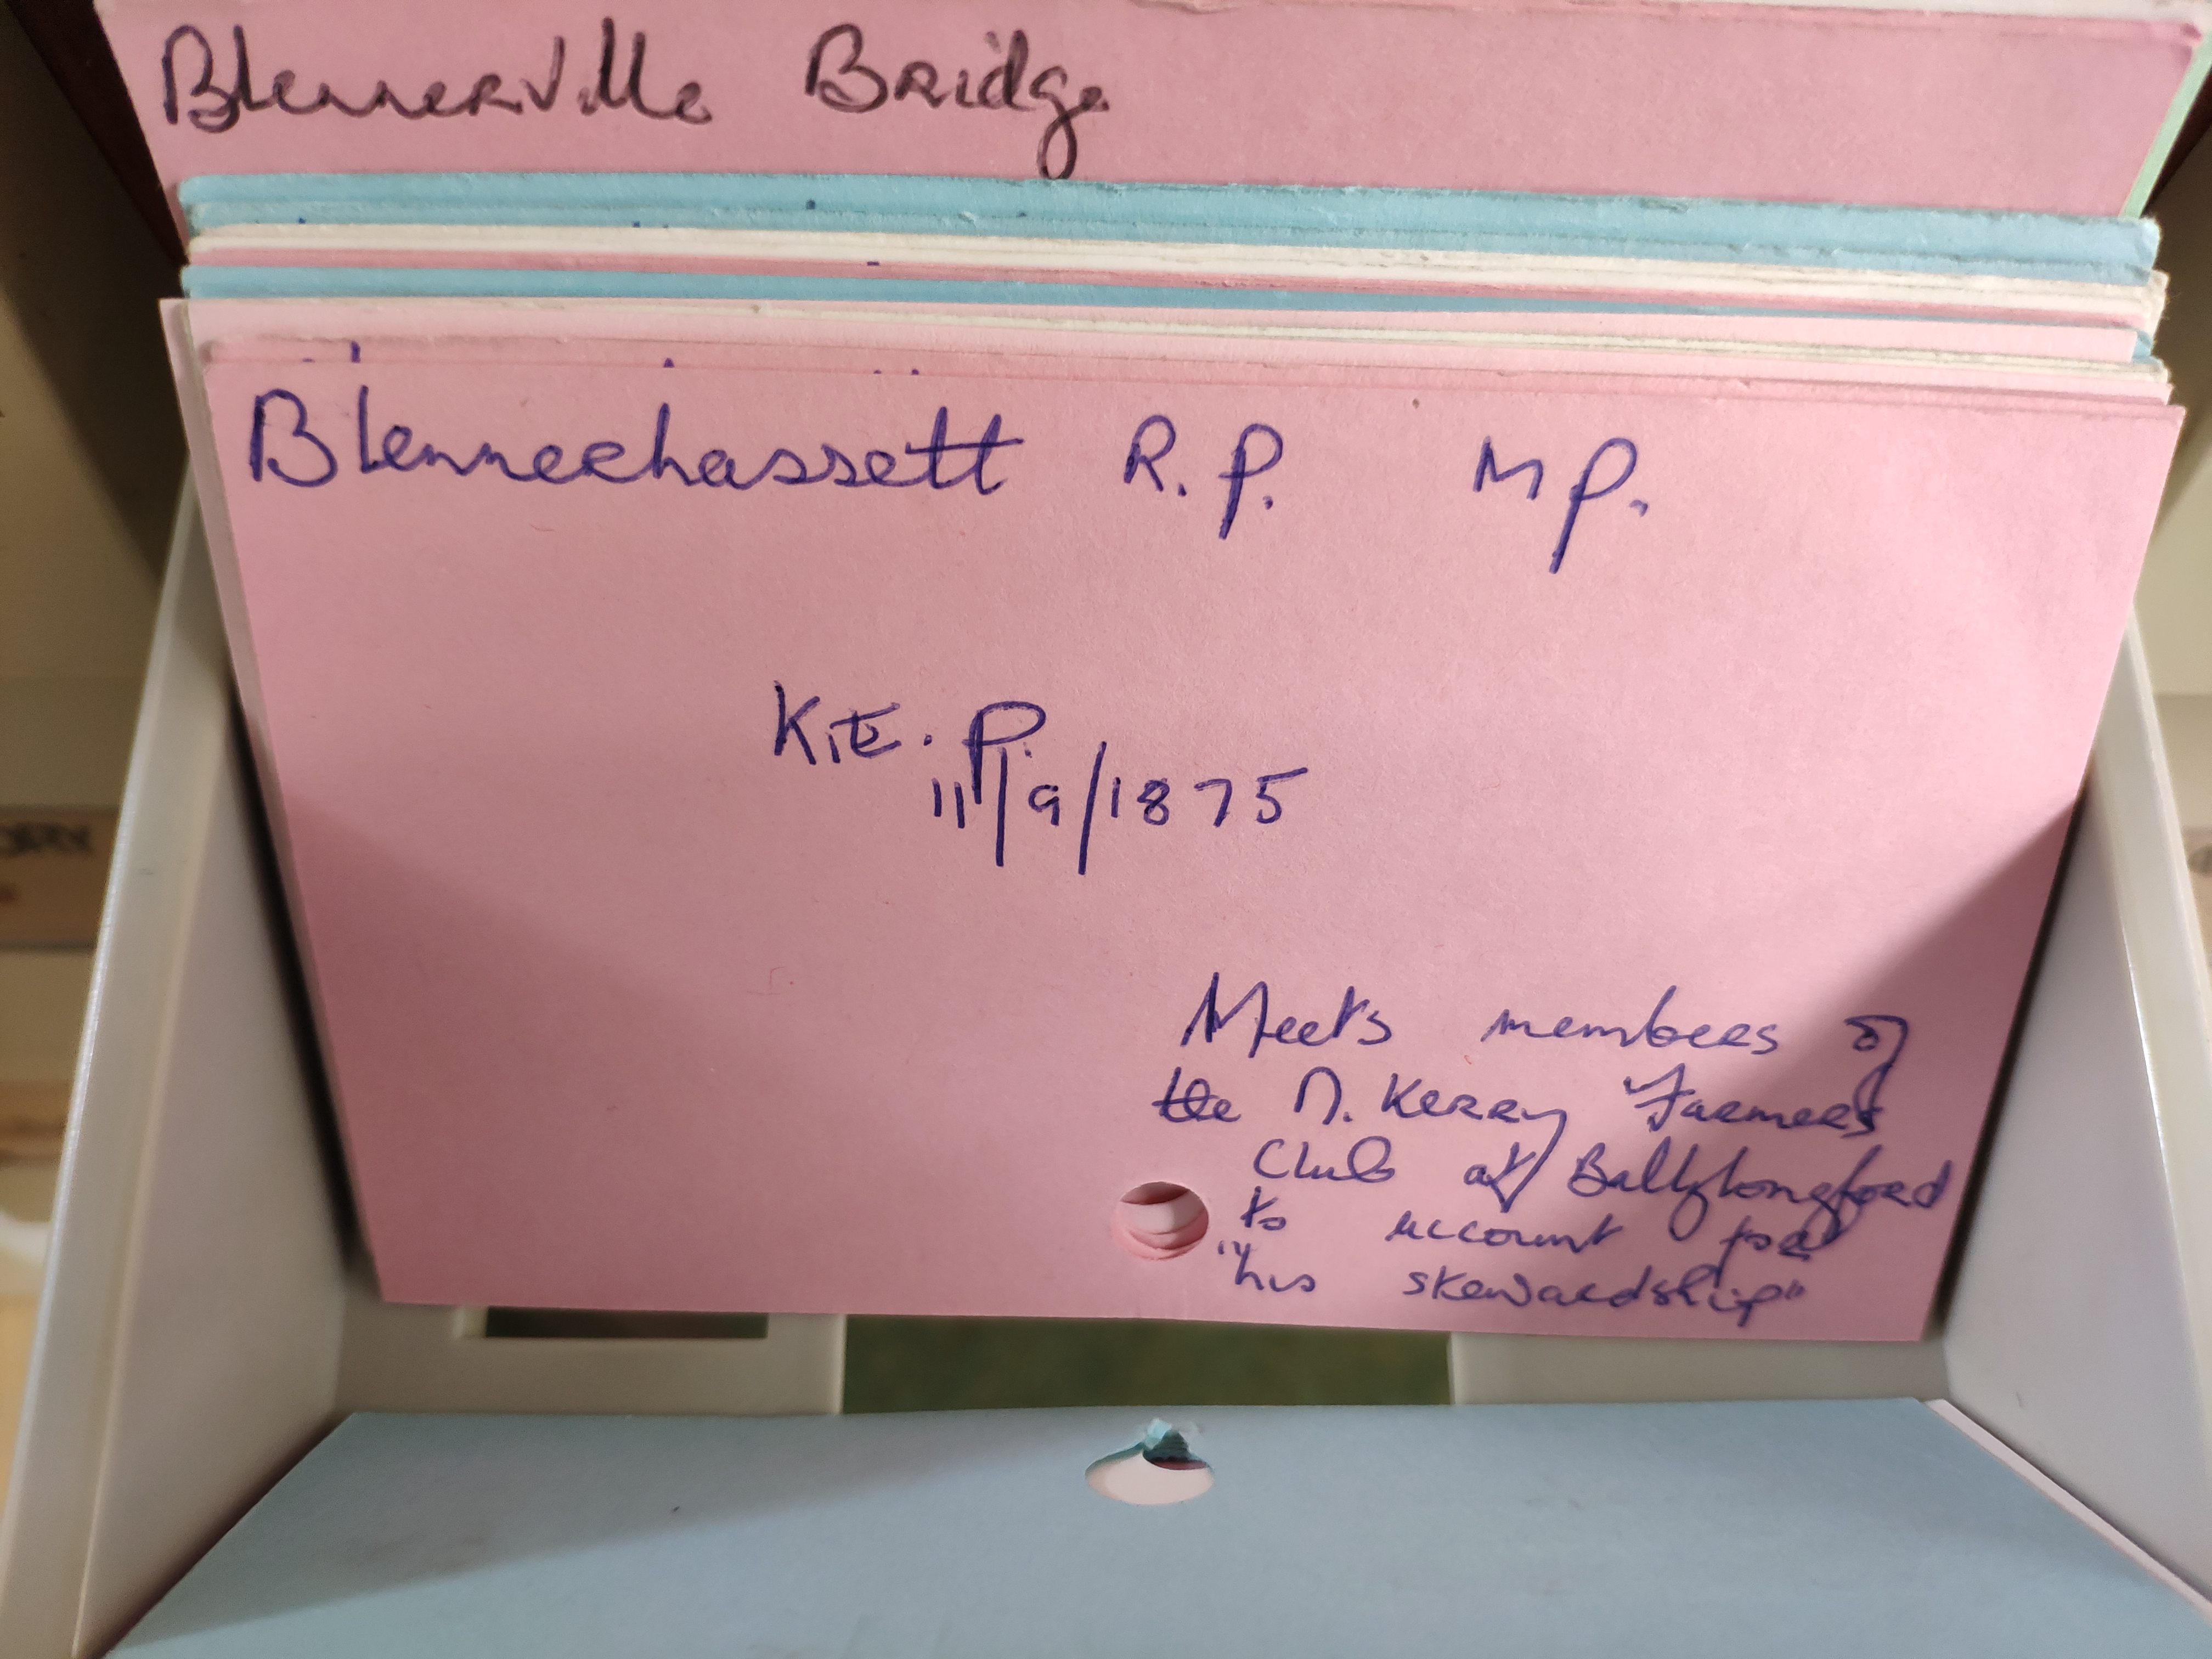 Blennerville Bridge
Blennerhassett R.P. MP.
K.E.P.
11/9/1875
Meets members of
the N. Kerry Farmers
Club at Ballylongford
to account for
"his stewardship"
ORY